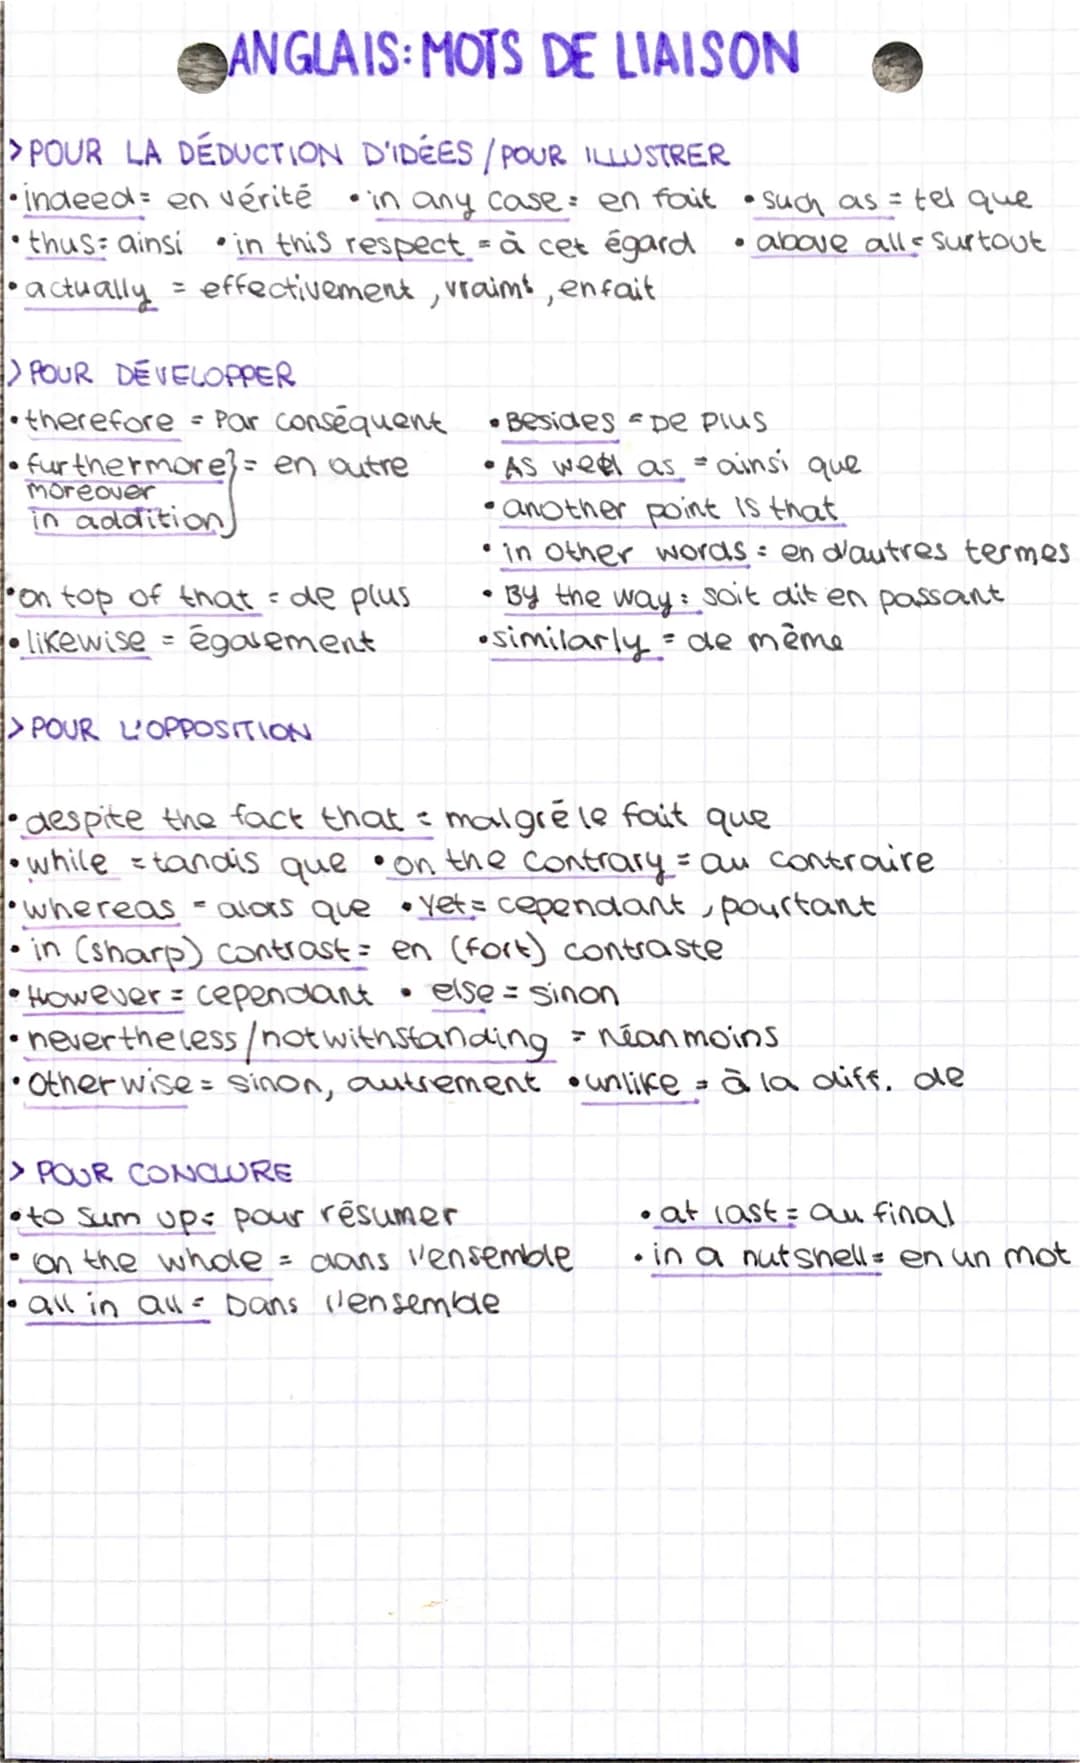 ANGLAIS: MOTS DE LIAISON
> POUR LA DÉDUCTION D'IDÉES / POUR ILLUSTRER
• indeed = en vérité • in any case = en fait • such as = tel que
• thus = ainsi • in this respect = à cet égard • above all = surtout
• actually = effectivement, vraimt, en fait
> POUR DÉVELOPPER
• therefore = Par conséquent • Besides = De plus
• furthermore } = en outre • As well as = ainsi que
moreover
in addition • another point is that
• in other words = en d'autres termes
• on top of that = de plus • By the way = soit dit en passant
• likewise = également • similarly = de même
> POUR L'OPPOSITION
• despite the fact that = malgré le fait que
• while = tandis que • on the contrary = au contraire
• whereas = alors que • yet = cependant, pourtant
• in (sharp) contrast = en (fort) contraste
• However = cependant • else = sinon
• nevertheless / notwithstanding = néanmoins
• Otherwise = sinon, autrement • unlike = à la diff. de
> POUR CONCLURE
• to sum up = pour résumer • at last = au final
• on the whole = dans l'ensemble • in a nutshell = en un mot
• all in all = Dans l'ensemble